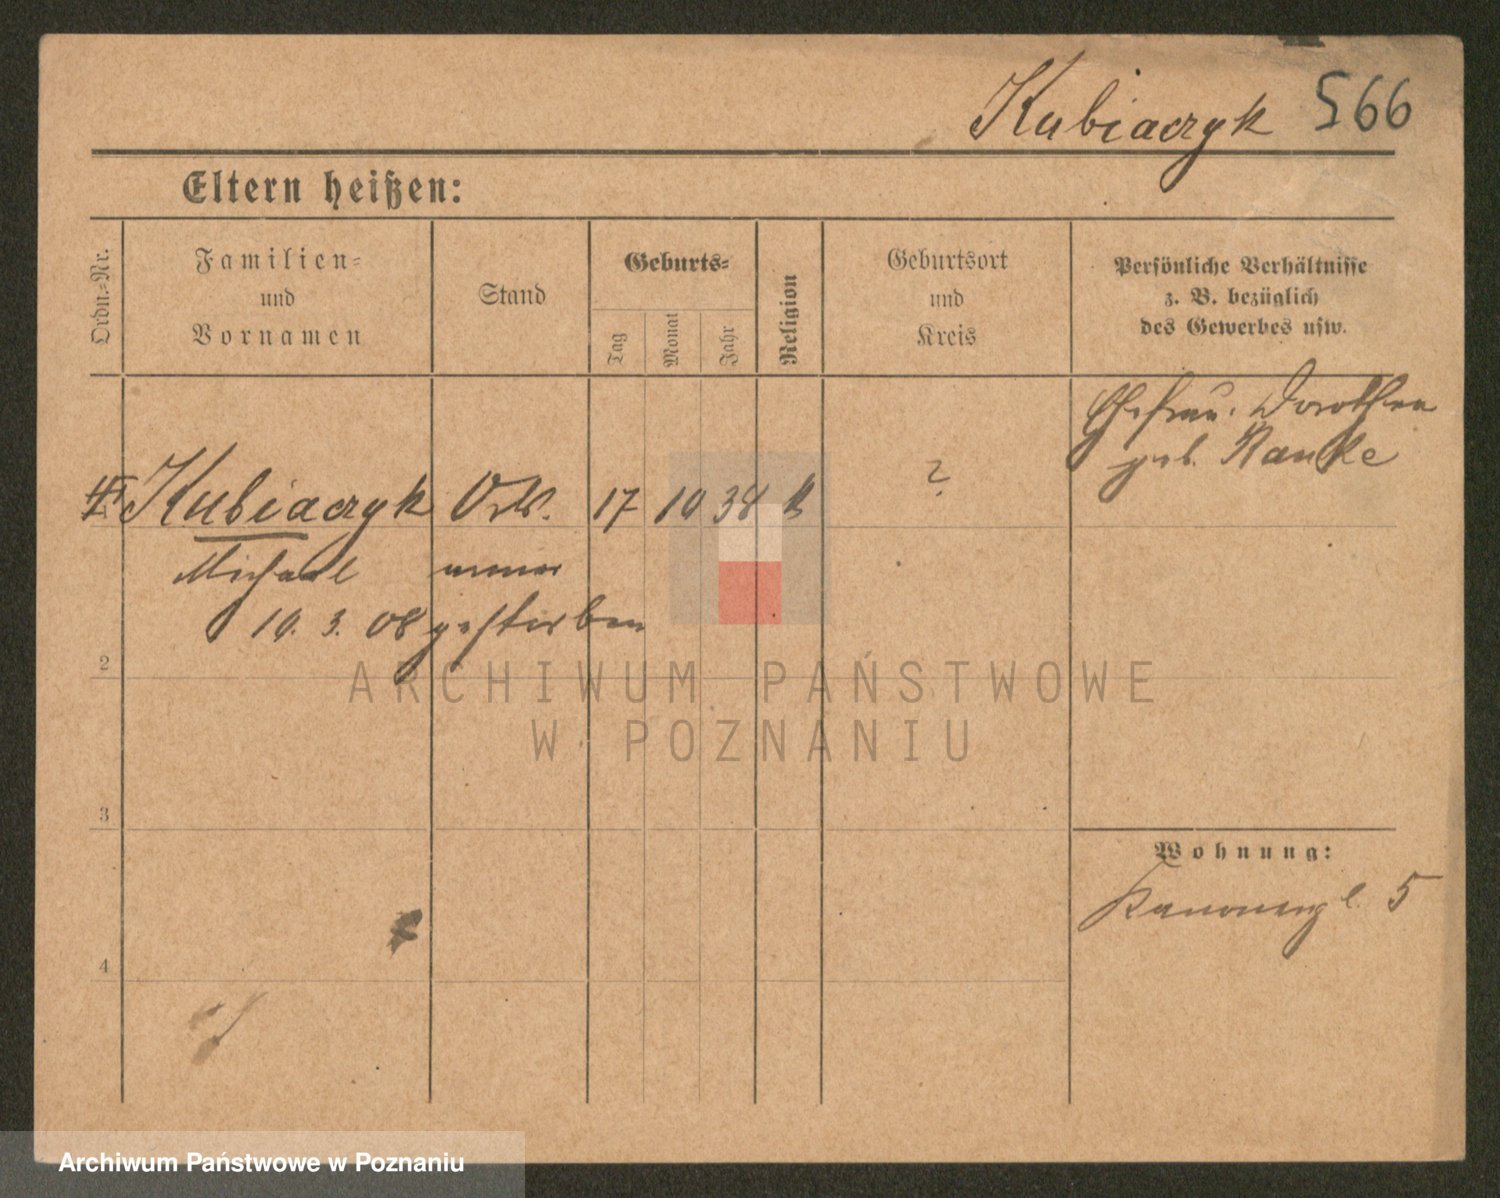 Kubiaczyk 566
Eltern heißen:
Ordn.=Nr.
Familien=
und
Vornamen
Stand
Geburts=
Tag
Monat
Jahr
Religion
Geburtsort
und
Kreis
Persönliche Verhältnisse
z. B. bezüglich
des Gewerbes usw.
Ehefrau. Dorothea
geb. Ranke
Kubiaczyk 17 10 38 k ?
Michael
10. 3. 08 gestorben
2
ARCHIWUM PAŃSTWOWE
W POZNANIU
3
Wohnung:
Kanoneng l. 5
4
Archiwum Państwowe w Poznaniu